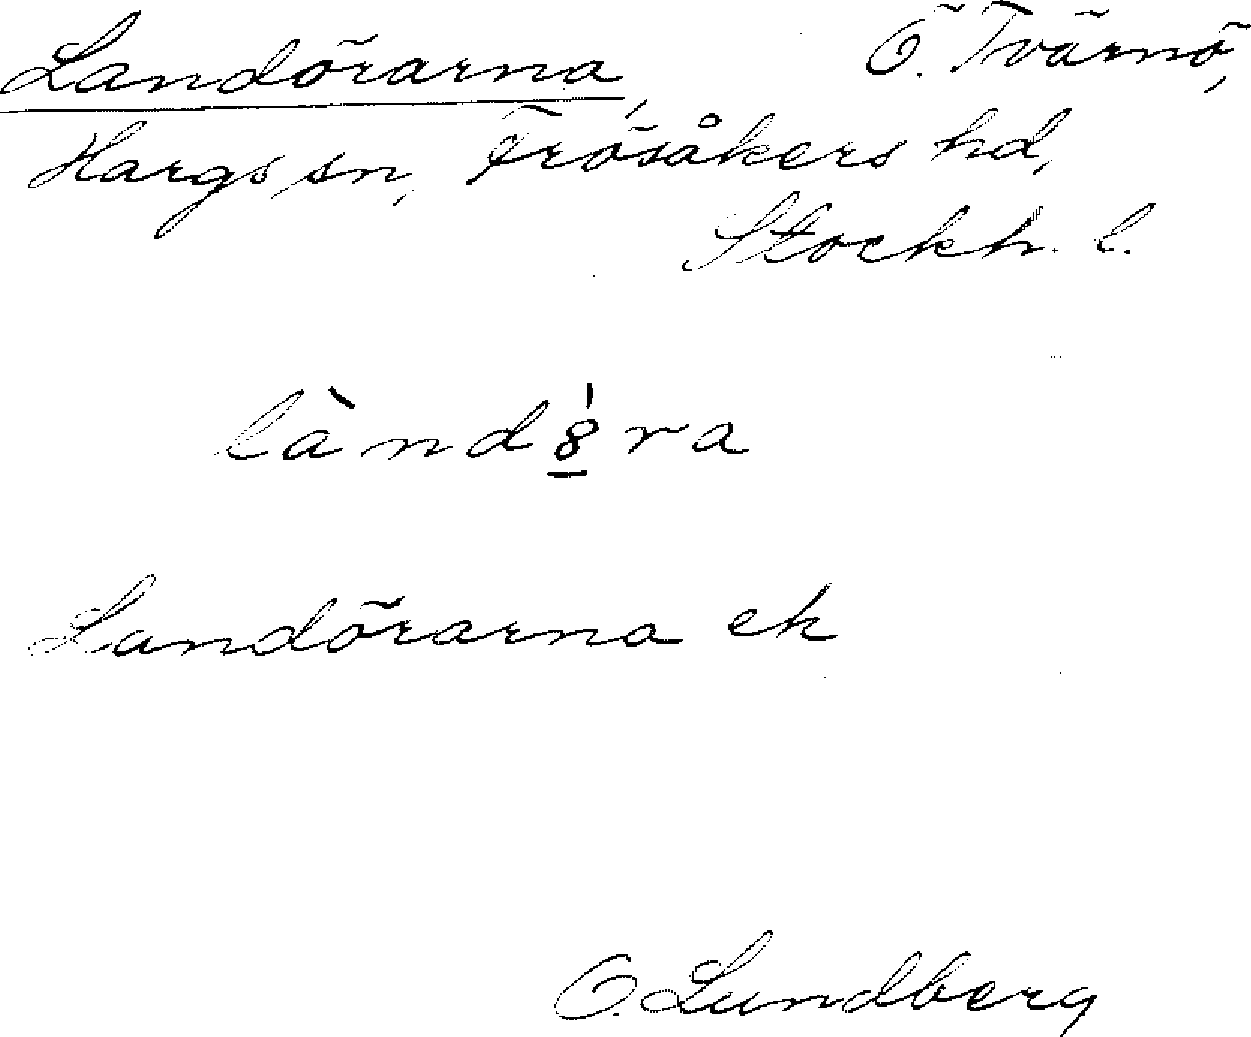 Landörarna, Ö. Tvärnö,
Hargs sn, Frösåkers hd,
Stockh. l.
lànd8̲̍ra
Landörarna ek
O. Lundberg